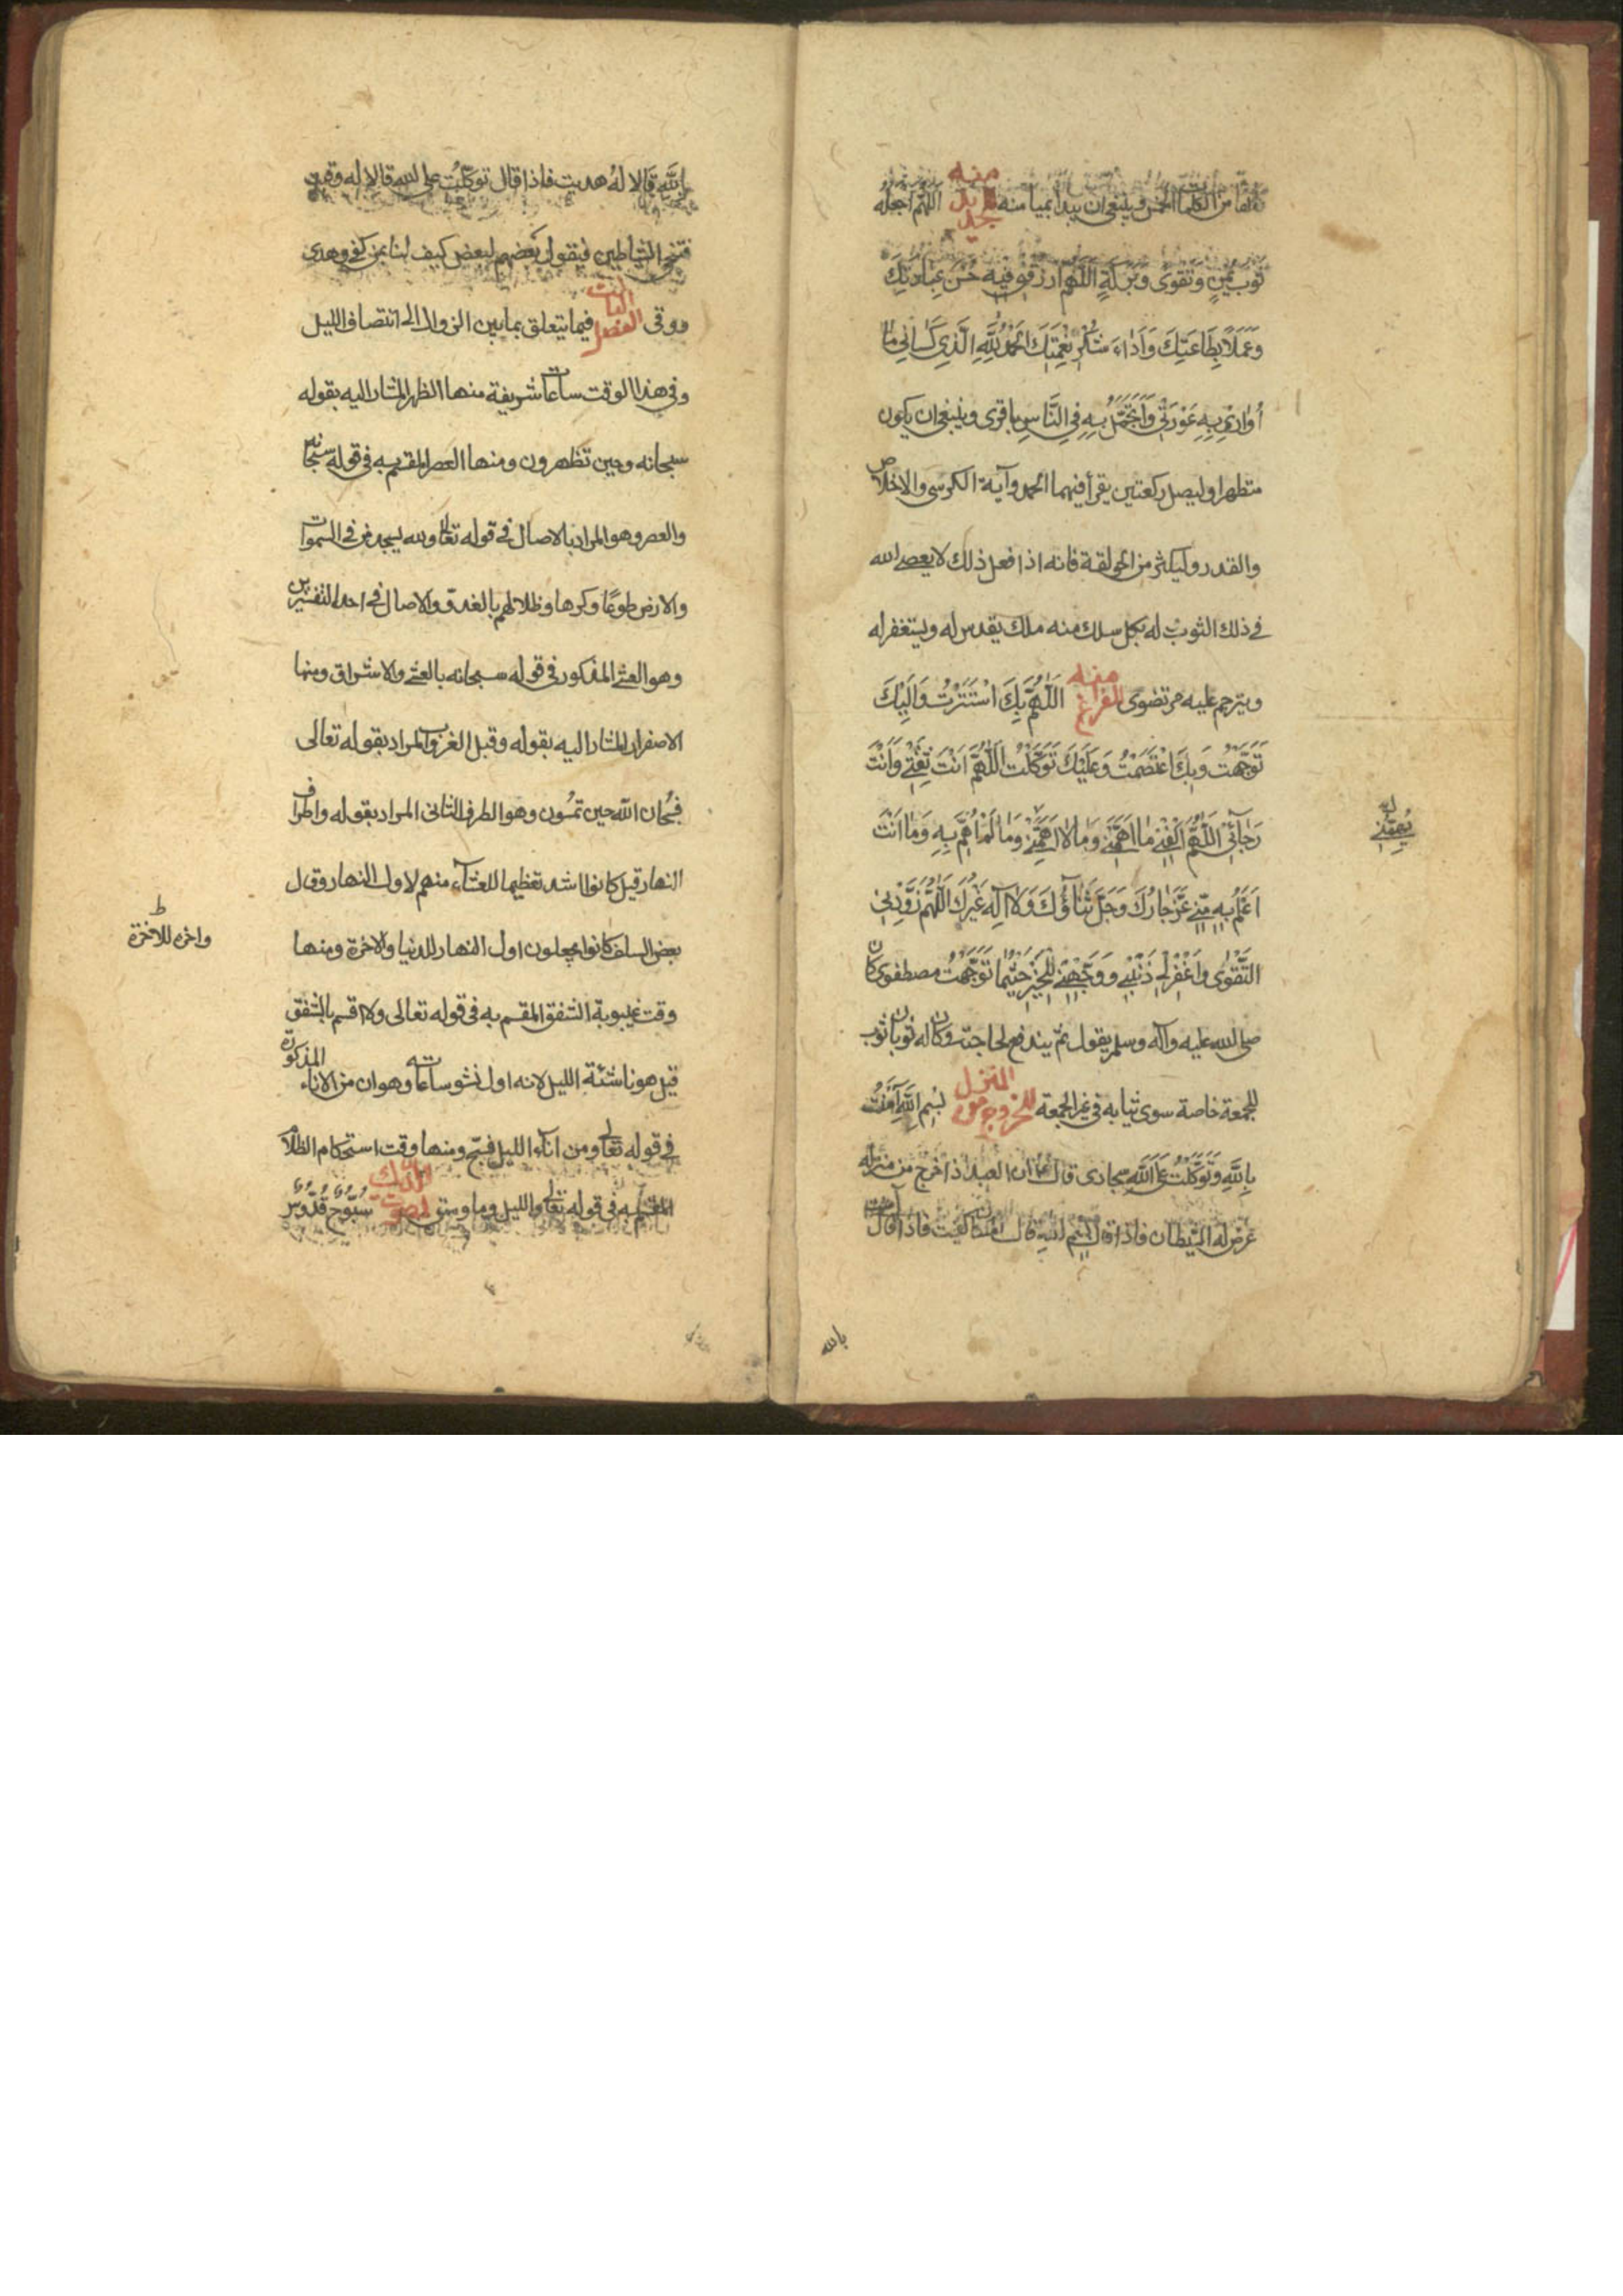 من الكلمات الخمس وينبغي ان يبدأ بميامنه منه جديد اللهم اجعله
ثوب يمن وتقوى وبركة اللهم ارزقني فيه حسن عبادتك
وَعَمَلاً بِطَاعَتِكَ وَاَدَاءَ شُكْرِ نِعْمَتِكَ اَلْحَمْدُ لِلَّهِ الَّذِي كَسَانِي مَا
اُوَارِي بِهِ عَوْرَتِي وَاَتَجَمَّلُ بِهِ فِي النَّاسِ باقرى وينبغى ان يكون
متطهرا وليصل ركعتين يقرأ فيهما الحمد وآية الكرسى والاخلاص
والقدر وليكثر من الحولقة فانه اذا فعل ذلك لا يعصى الله
فى ذلك الثوب له بكل سلك منه ملك يقدس له ويستغفر له
ويترحم عليه مرتضوى الفراغ منه اَللّٰهُمَّ بِكَ اسْتَتَرْتُ وَاِلَيْكَ
تَوَجَّهْتُ وَبِكَ اعْتَصَمْتُ وَعَلَيْكَ تَوَكَّلْتُ اَللّٰهُمَّ اَنْتَ ثِقَتِي وَاَنْتَ
رَجَائِي اَللّٰهُمَّ اكْفِنِي مَا اَهَمَّنِي وَمَا لَا اَهَمَّنِي وَمَا لَمْ اَهْتَمَّ بِهِ وَمَا اَنْتَ
يُهِمُّنِي
اَعْلَمُ بِهِ مِنِّي عَزَّ جَارُكَ وَجَلَّ ثَنَاؤُكَ وَلَا اِلٰهَ غَيْرُكَ اَللّٰهُمَّ زَوِّدْنِي
التَّقْوٰى وَاغْفِرْ لِي ذَنْبِي وَوَجِّهْنِي لِلْخَيْرِ حَيْثُمَا تَوَجَّهْتُ مصطفوى كان
صلى الله عليه وآله وسلم يقول ثم يندفع لحاجته وكان له ثوبان ثوب
للجمعة خاصة سوى ثيابه فى غير الجمعة للخروج من المنزل بِسْمِ اللهِ آمَنْتُ
بِاللهِ وَتَوَكَّلْتُ عَلَى اللهِ سجادى قال ان العبد اذا خرج من منزله
عرض له الشيطان فاذا قال بسم الله قال الملكان كفيت فاذا قال آمنت
بالله
بالله قالا له هديت فاذا قال توكلت على الله قالا له وقيت
فتنحى الشياطين فيقول بعضهم لبعض كيف لنا بمن كفى وهدى
ووقى الفصل الثالث فيما يتعلق بما بين الزوال الى انتصاف الليل
وفى هذا الوقت ساعات شريفة منها الظهر المشار اليه بقوله
سبحانه وحين تظهرون ومنها العصر المقسم به فى قوله سبحانه
والعصر وهو المراد بالاصال فى قوله تعالى ولله يسجد من فى السموات
والارض طوعًا وكرها وظلالهم بالغدو والاصال فى احد التفسيرين
وهو العشى المذكور فى قوله سبحانه بالعشى والاشراق ومنها
الاصفرار المشار اليه بقوله وقبل الغروب المراد بقوله تعالى
فسبحان الله حين تمسون وهو الطرف الثانى المراد بقوله واطراف
النهار قيل كانوا اشد تعظيما للعشاء منهم لاول النهار وقال
بعض السلف كانوا يجعلون اول النهار للدنيا والاخرة ومنها
ط
واخره للاخرة
وقت غيبوبة الشفق المقسم به فى قوله تعالى ولا اقسم بالشفق
قيل هو ناشئة الليل لانه اول نشو ساعاته وهو ان من الاناء المذكورة
فى قوله تعالى ومن آناء الليل فسبح ومنها وقت استحكام الظلام
المقسم به فى قوله تعالى والليل وما وسق لصوت الديك سُبُّوحٌ قُدُّوسٌ